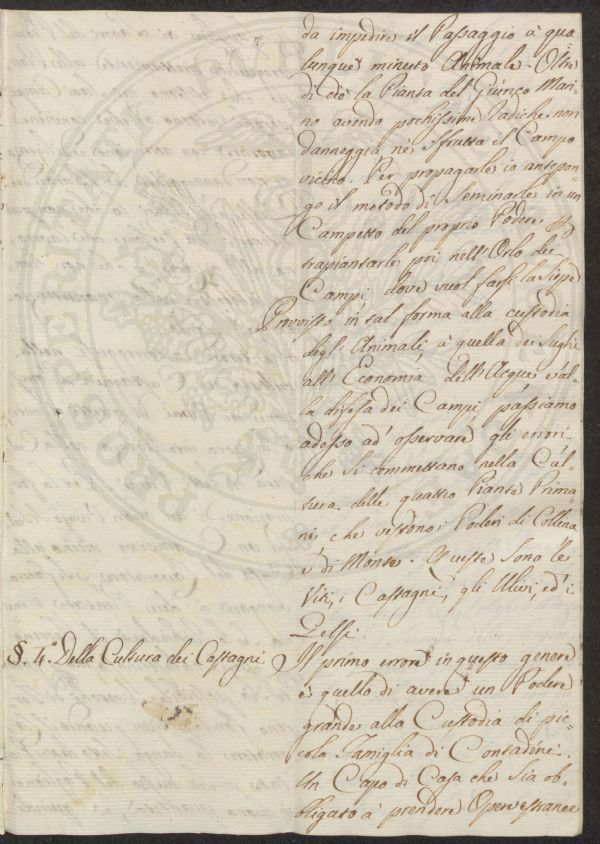 da impedire il Passaggio à qua
lunque minuto Animale. Oltre
di ciò la Pianta del Giunco Mari-
no avendo pochissime Radiche non
danneggia ne sfrutta il Campo
vicino. Per propagarle io antepon-
go il metodo di Seminarle in un
Campetto del proprio Podere, p
trapiantarle poi nell'Orlo dei
Campi, dove vuol farsi la Siepe
Provvisto in tal forma alla custodia
degl'Animali, à quella dei
all'Economia dell'Acque, e al-
la difesa dei Campi, passiamo
adesso ad' osservare gli errori
che si commettano nella Cul-
tura delle quattro Piante Prima-
rie che vestono i Poderi di Collina
e' di Monte. Queste sono le
Viti, i Castagni, gli Ulivi, ed' i
Gelsi.
§. 4.° Della Cultura dei Castagni
Il primo errore in questo genere
è quello di avere un Podere
grande alla Custodia di pic-
cola Famiglia di Contadini.
Un Capo di Casa che sia ob-
bligato à prendere Opere estranee